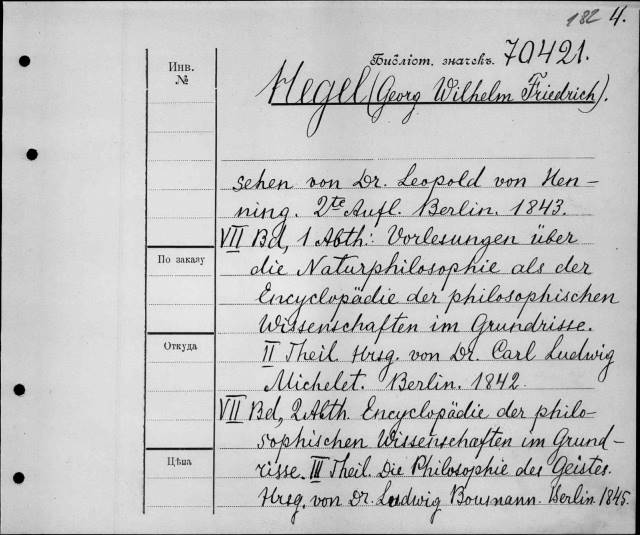 182 4.
Инв.
№
Библіот. значекъ. 70421.
Hegel (Georg Wilhelm Friedrich).
sehen von Dr. Leopold von Hen-
ning. 2te Aufl. Berlin. 1843.
VII Bd, 1 Abth.: Vorlesungen über
По заказу
die Naturphilosophie als der
Encyclopädie der philosophischen
Wissenschaften im Grundrisse.
Откуда
II Theil. Hrsg. von Dr. Carl Ludwig
Michelet. Berlin. 1842.
VII Bd, 2 Abth. Encyclopädie der philo-
sophischen Wissenschaften im Grund-
Цѣна
risse. III Theil. Die Philosophie des Geistes.
Hrsg. von Dr. Ludwig Boumann. Berlin 1845.